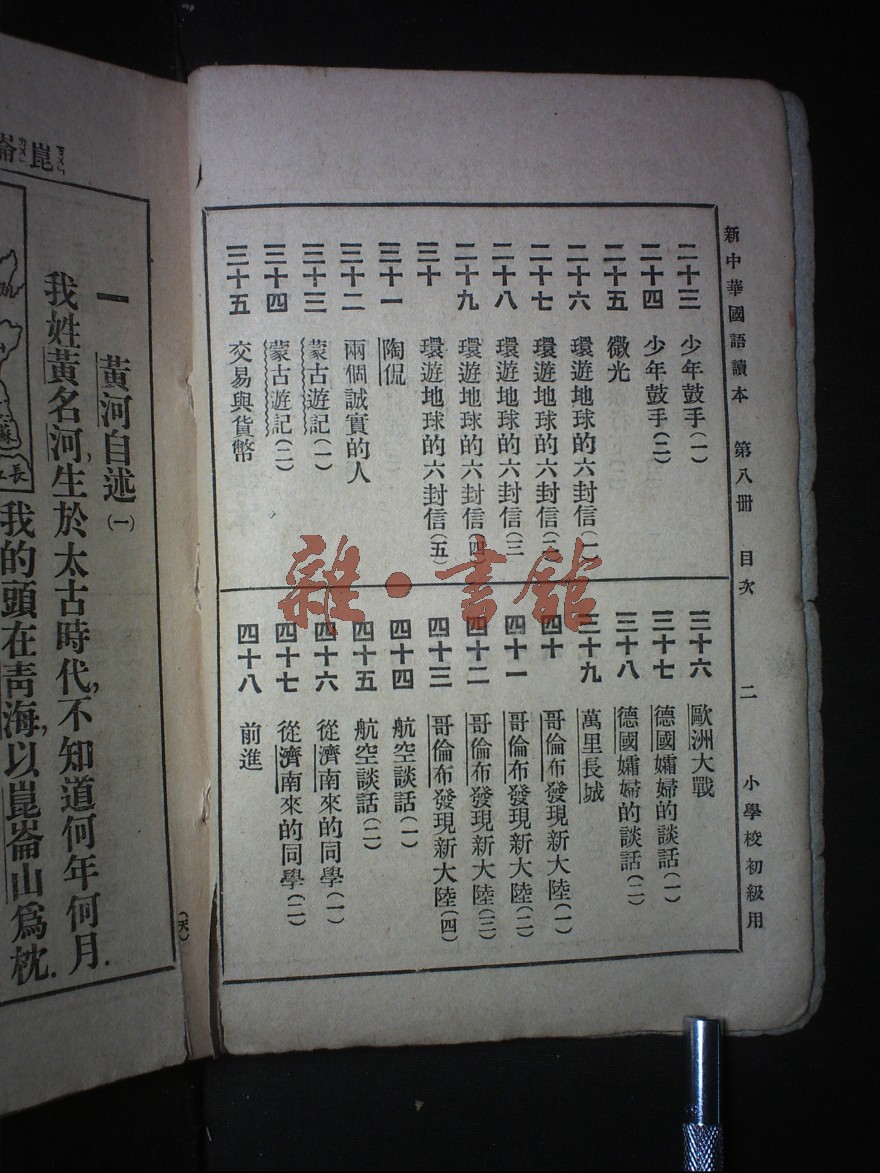 新中華國語讀本 第八册 目次 二 小學校初級用
二十三 少年鼓手(一)
二十四 少年鼓手(二)
二十五 微光
二十六 環遊地球的六封信(一)
二十七 環遊地球的六封信(二)
二十八 環遊地球的六封信(三
二十九 環遊地球的六封信(四)
三十 環遊地球的六封信(五)
三十一 陶侃
三十二 兩個誠實的人
三十三 蒙古遊記(一)
三十四 蒙古遊記(二)
三十五 交易與貨幣
三十六 歐洲大戰
三十七 德國孀婦的談話(一)
三十八 德國孀婦的談話(二)
三十九 萬里長城
四十 哥倫布發現新大陸(一)
四十一 哥倫布發現新大陸(二)
四十二 哥倫布發現新大陸(三)
四十三 哥倫布發現新大陸(四)
四十四 航空談話(一)
四十五 航空談話(二)
四十六 從濟南來的同學(一)
四十七 從濟南來的同學(二)
四十八 前進
雜·書館
一 黃河自述(一)
我姓黃名河,生於太古時代,不知道何年何月.
我的頭在青海,以崑崙山爲枕.
崑崙
長江